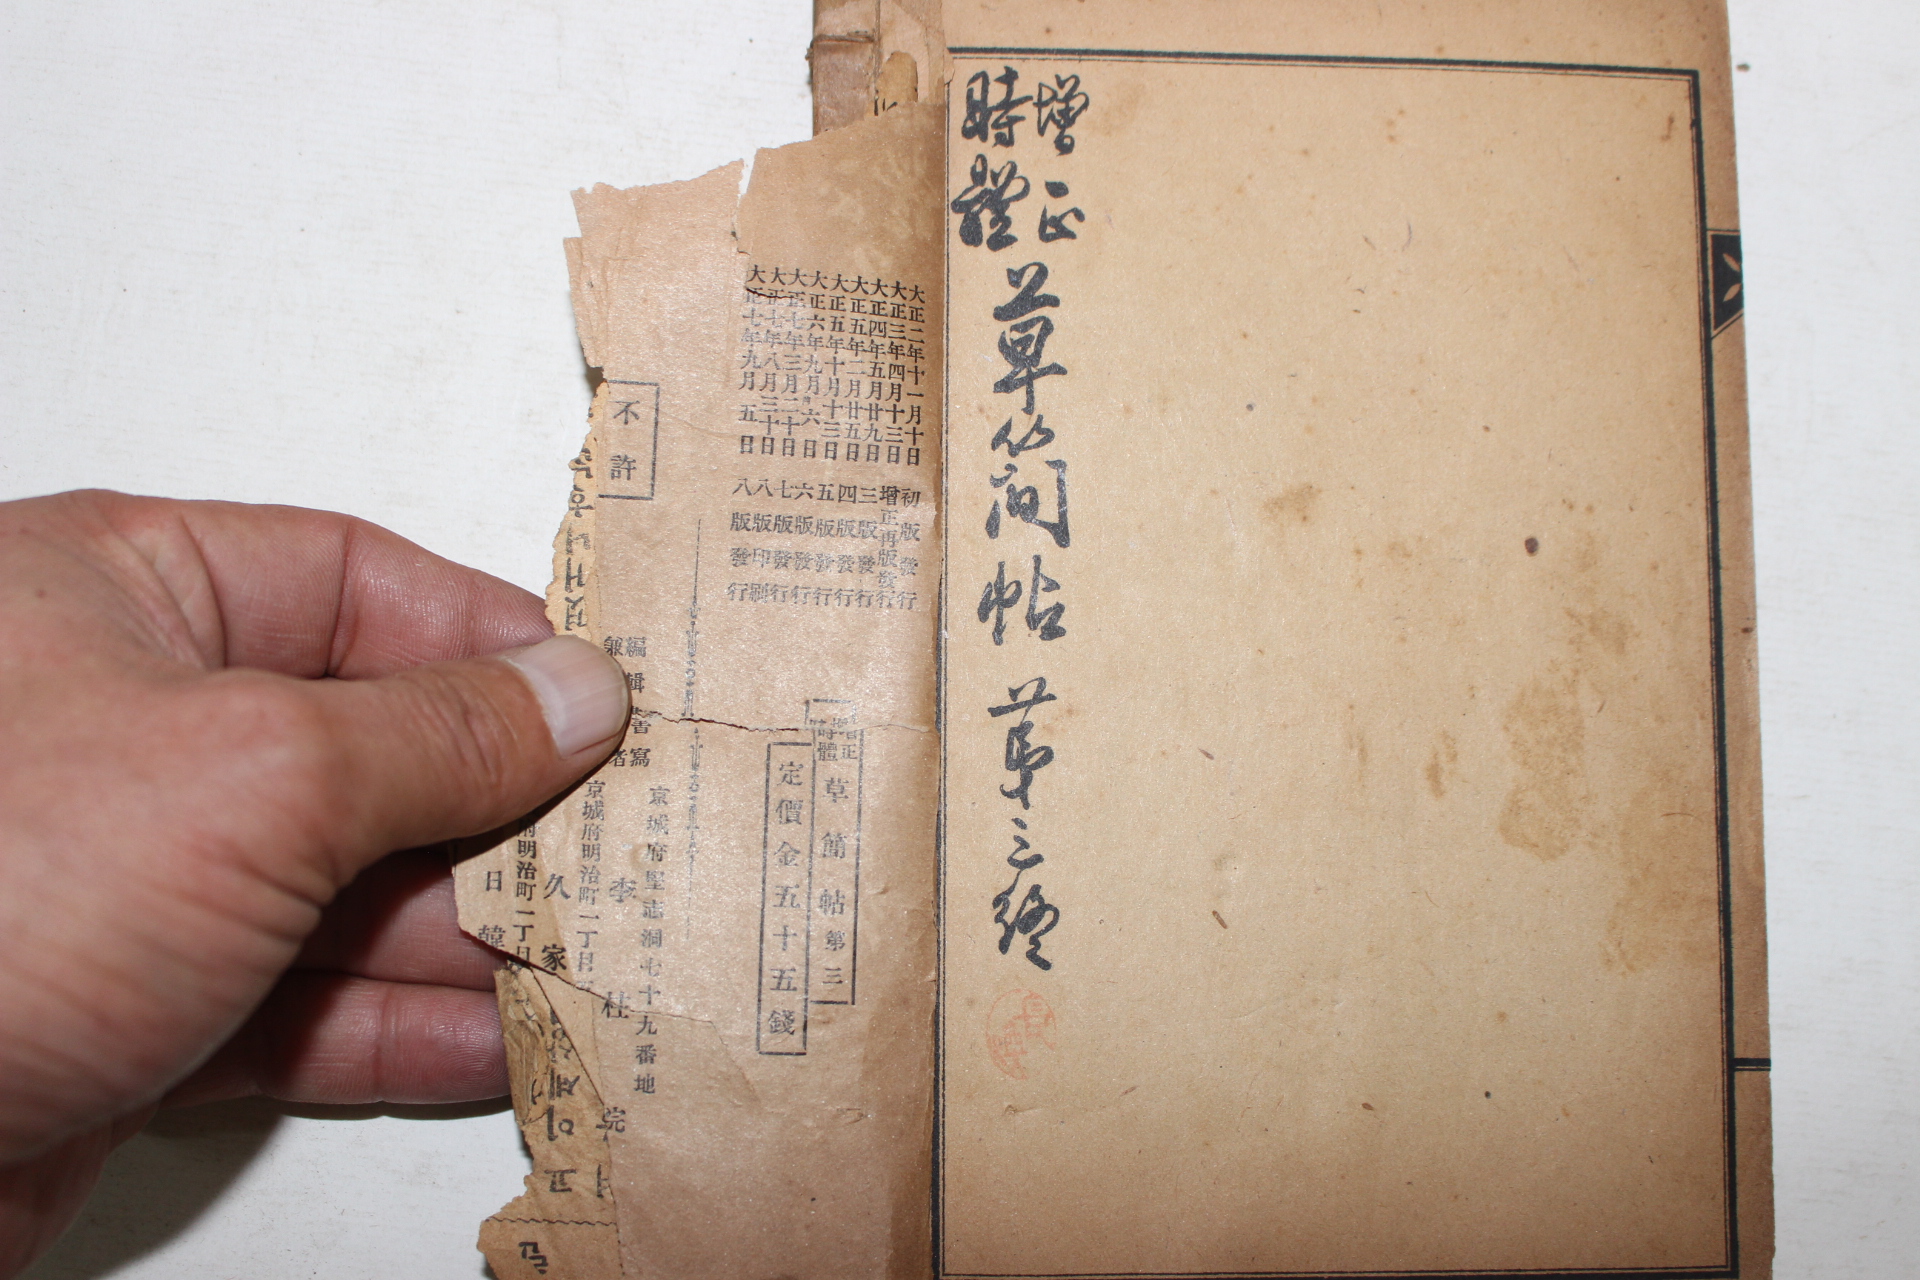 增正
時體
草簡帖 第三終
大正二年十一月十日 初版發行
大正三年四月十三日 增正再版發行
大正四年五月廿九日 三版發行
大正五年二月廿五日 四版發行
大正五年十月十三日 五版發行
大正六年九月六日 六版發行
大正七年三月二十日 七版發行
大正七年八月三十日 八版印刷
大正七年九月五日 八版發行
增正
時體
草簡帖 第三
定價金五十五錢
不許
編輯兼書寫者
京城府堅志洞七十九番地
李柱完
京城府明治町一丁目
久家
府明治町一丁目
日韓